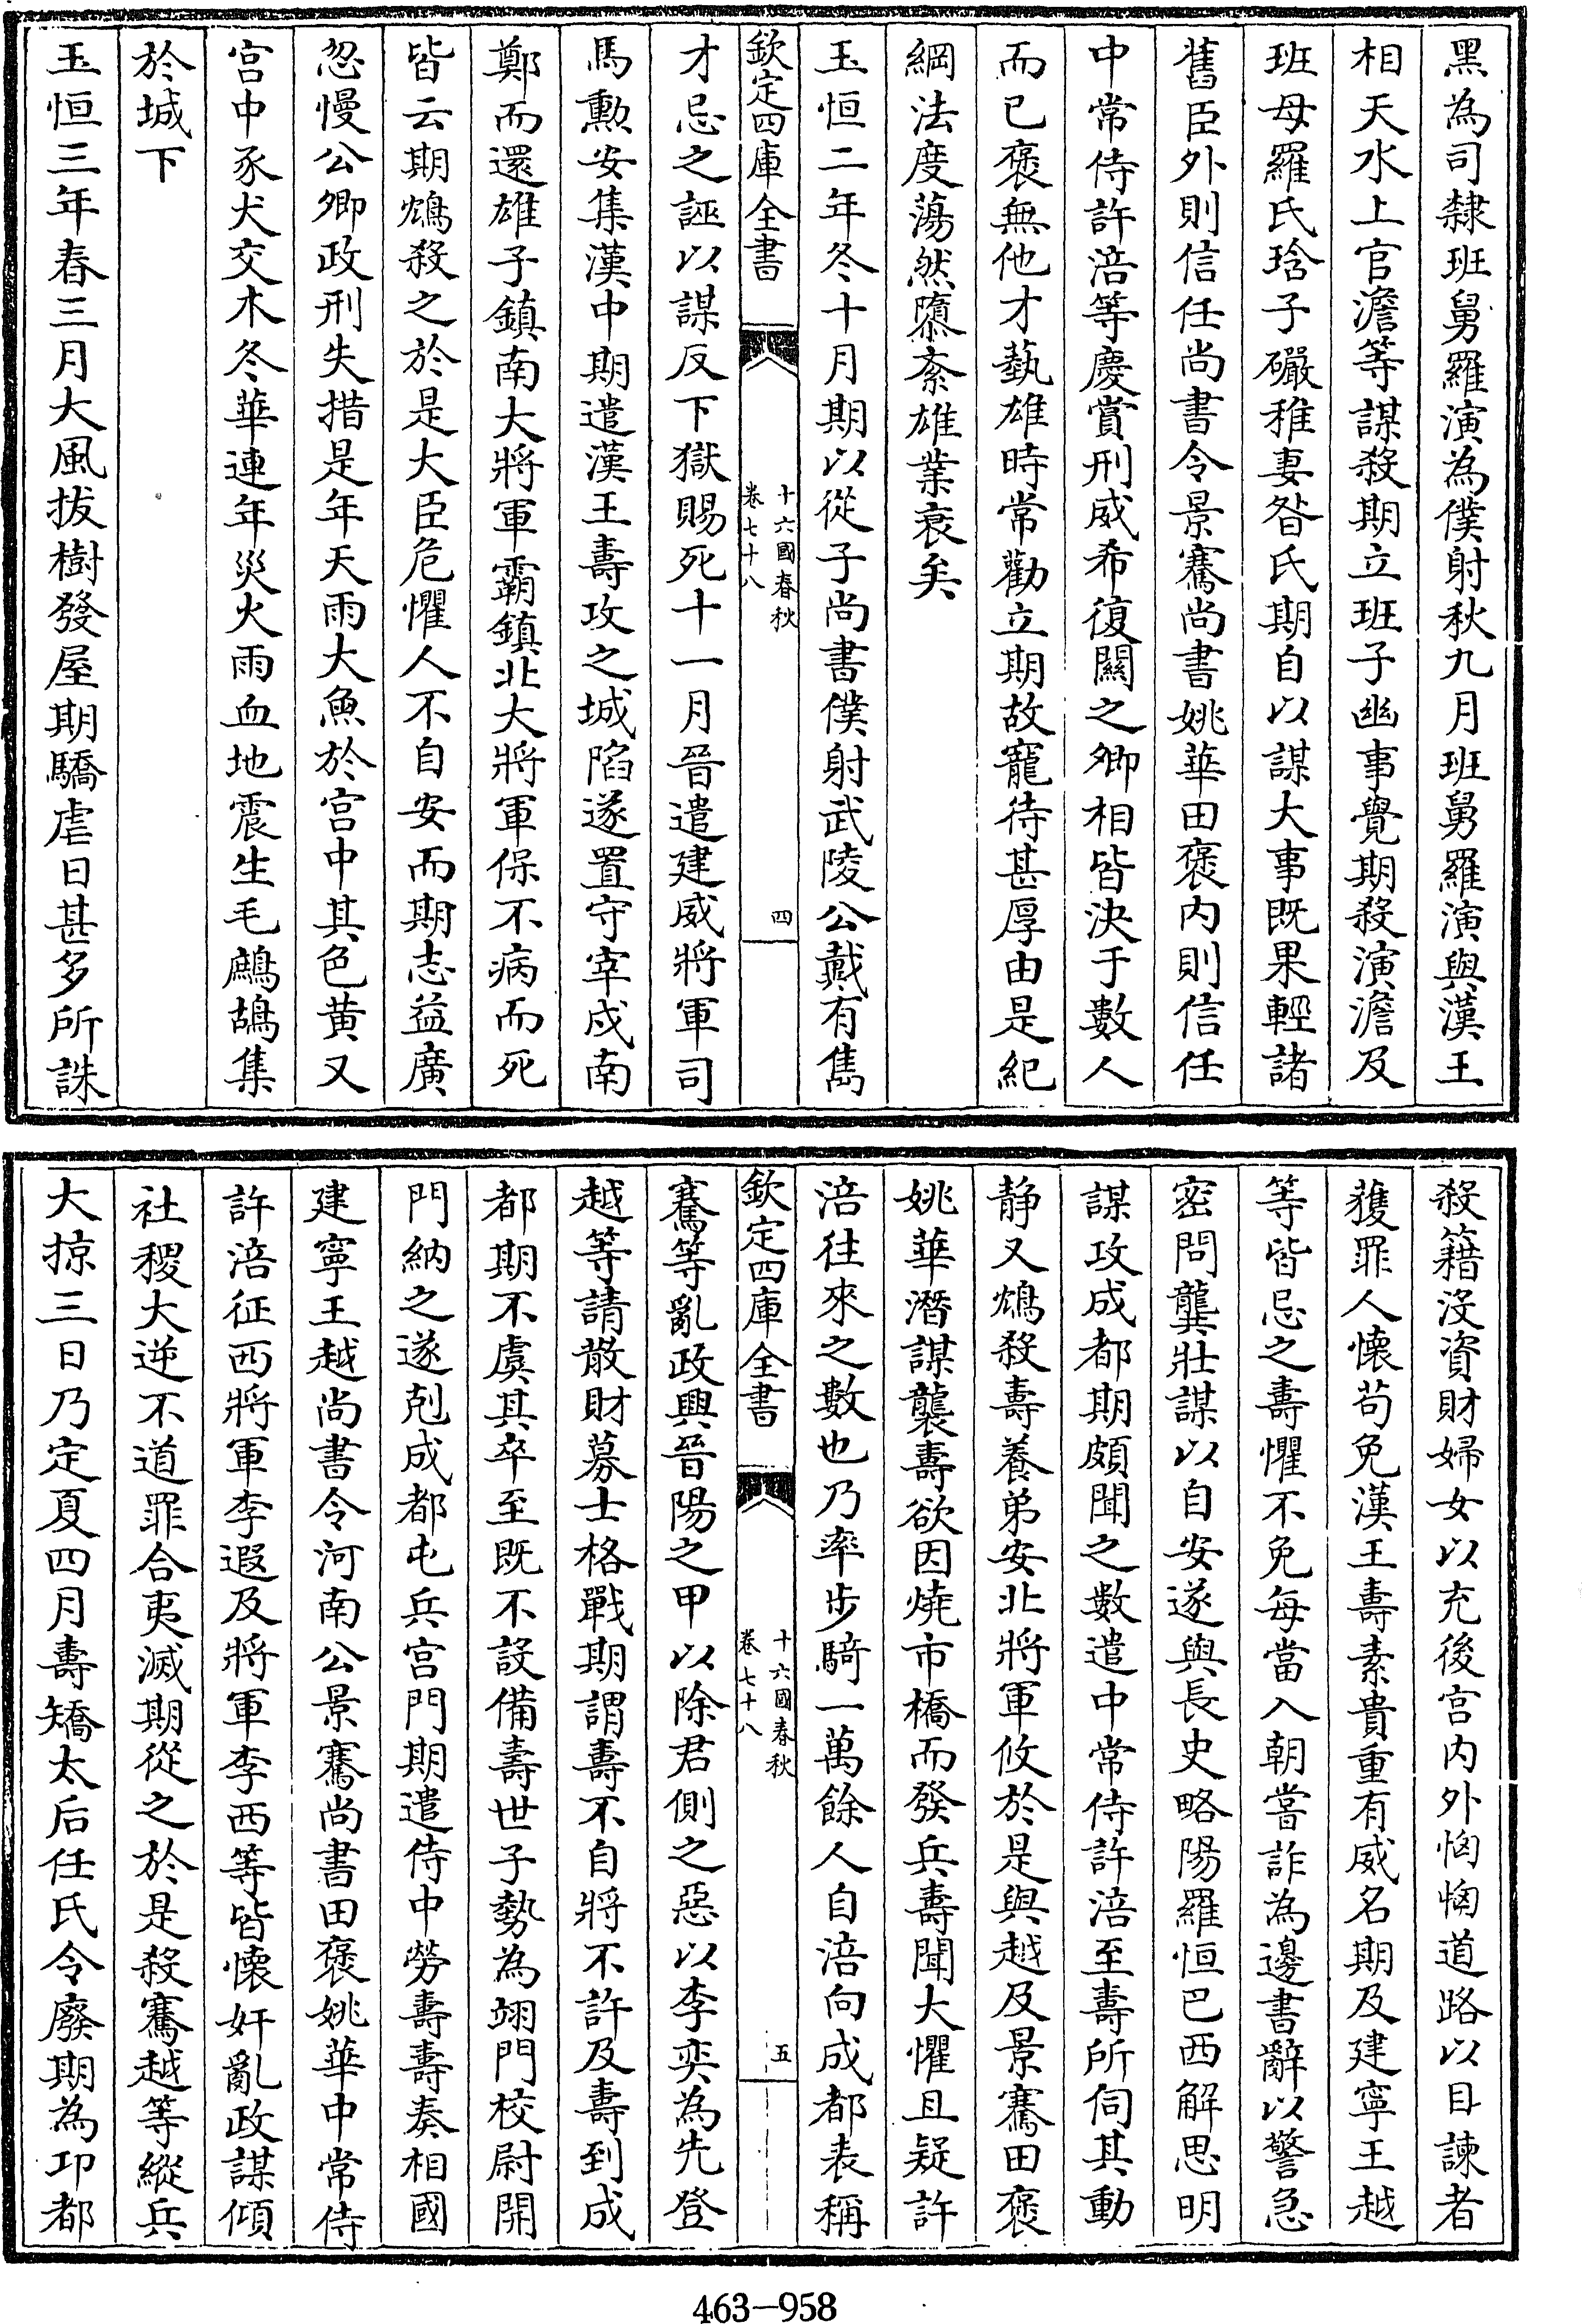 黑為司隸班舅羅演為僕射秋九月班舅羅演與漢王
相天水上官澹等謀殺期立班子幽事覺期殺演澹及
班母羅氏琀子礹稚妻昝氏期自以謀大事既果輕諸
舊臣外則信任尚書令景騫尚書姚華田褒内則信任
中常侍許涪等慶賞刑威希復關之卿相皆決于數人
而已褒無他才藝雄時常勸立期故寵待甚厚由是紀
綱法度蕩然隳紊雄業衰矣
玉恒二年冬十月期以從子尚書僕射武陵公戴有雋
欽定四庫全書
十六國春秋
卷七十八
四
才忌之誣以謀反下獄賜死十一月晉遣建威將軍司
馬勲安集漢中期遣漢王壽攻之城陷遂置守宰戍南
鄭而還雄子鎮南大將軍霸鎮北大將軍保不病而死
皆云期鴆殺之於是大臣危懼人不自安而期志益廣
忽慢公卿政刑失措是年天雨大魚於宫中其色黄又
宫中豕犬交木冬華連年災火雨血地震生毛鷓鴣集
於城下
玉恒三年春三月大風拔樹發屋期驕虐日甚多所誅
殺籍没資財婦女以充後宫内外恟恟道路以目諫者
獲罪人懐苟免漢王壽素貴重有威名期及建寧王越
等皆忌之壽懼不免每當入朝嘗詐為邊書辭以警急
密問龔壯謀以自安遂與長史略陽羅恒巴西解思明
謀攻成都期頗聞之數遣中常侍許涪至壽所伺其動
静又鴆殺壽養弟安北將軍攸於是與越及景騫田褒
姚華潛謀襲壽欲因燒市橋而發兵壽聞大懼且疑許
涪往來之數也乃率步騎一萬餘人自涪向成都表稱
欽定四庫全書
十六國春秋
卷七十八
五
騫等亂政興晉陽之甲以除君側之惡以李奕為先登
越等請散財募士格戰期謂壽不自將不許及壽到成
都期不虞其卒至既不設備壽世子勢為翊門校尉開
門納之遂剋成都屯兵宫門期遣侍中勞壽壽奏相國
建寧王越尚書令河南公景騫尚書田褒姚華中常侍
許涪征西將軍李遐及將軍李西等皆懐奸亂政謀傾
社稷大逆不道罪合夷滅期從之於是殺騫越等縱兵
大掠三日乃定夏四月壽矯太后任氏令廢期為卭都
463-958